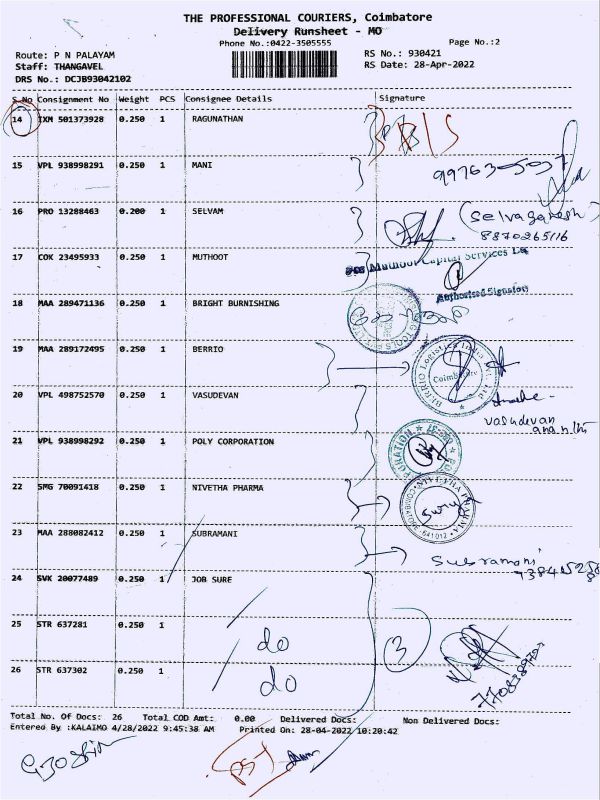 THE PROFESSIONAL COURIERS, Coimbatore
Delivery Runsheet - MO
Phone No.:0422-3505555
Page No.:2
Route: P N PALAYAM
RS No.: 930421
Staff: THANGAVEL
RS Date: 28-Apr-2022
DRS No.: DCJB93042102
S.No Consignment No Weight PCS Consignee Details Signature
14 IXM 501373928 0.250 1 RAGUNATHAN
15 VPL 938998291 0.250 1 MANI
16 PRO 13288463 0.200 1 SELVAM
(Selvaganesh)
8870265116
17 COK 23495933 0.250 1 MUTHOOT
For Muthoot Capital Services Ltd
Authorised Signatory
18 MAA 289471136 0.250 1 BRIGHT BURNISHING
19 MAA 289172495 0.250 1 BERRIO
BERRIO Logistics India Pvt Ltd
Coimbatore
20 VPL 498752570 0.250 1 VASUDEVAN
Vasudevan
21 VPL 938998292 0.250 1 POLY CORPORATION
22 SMG 70091418 0.250 1 NIVETHA PHARMA
NIVETHA PHARMA
COIMBATORE - 641012
23 MAA 288082412 0.250 1 SUBRAMANI
Subramani
24 SVK 20077489 0.250 1 JOB SURE
25 STR 637281 0.250 1 do
3
26 STR 637302 0.250 1 do
Total No. Of Docs: 26 Total COD Amt: 0.00 Delivered Docs: Non Delivered Docs:
Entered By :KALAIMO 4/28/2022 9:45:38 AM Printed On: 28-04-2022 10:20:42